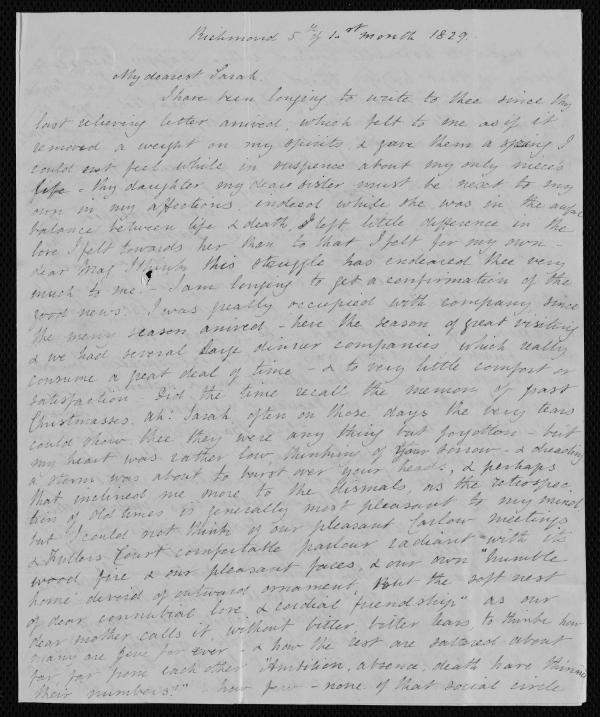 Richmond 5th of 1st month 1829.
My dearest Sarah
I have been longing to write to thee since thy
last relieving letter arrived, which felt to me as if it
removed a weight on my spirits, & gave them a spring I
could not feel while in suspence about my only niece's
life - thy daughter my dear sister must be next to my
own in my affections, indeed while she was in the awful
balance between life & death, I felt little difference in the
love I felt towards her than to that I felt for my own -
dear Mag I think this struggle has endeared thee very
much to me - I am longing to get a confirmation of the
good news. I was greatly occupied with company since
the merry season arrived - here the season of great visiting
& we had several large dinner companies which really
consume a great deal of time - & to very little comfort or
satisfaction - Did the time recall the memory of past
Christmasses. Ah! Sarah often on those days the very tears
could show thee they were any thing but forgotten - but
my heart was rather low, thinking of your sorrow - & dreading
a storm was about to burst over your heads, & perhaps
that inclined me more to the dismals, as the retrospec
tion of old times is generally most pleasant to my mind
but I could not think of our pleasant Carlow meetings
& Fullers Court comfortable parlour radiant "with its
wood fire & our pleasant faces, & our own "humble
home devoid of outward ornament, But the soft nest
of dear connubial love & cordial friendship" as our
dear mother calls it, without bitter, bitter tears, to think how
many are gone for ever - & how the rest are scattered about
far far from each other "Ambition, absence, death have thinned
their numbers!" - how few - none of that social circle